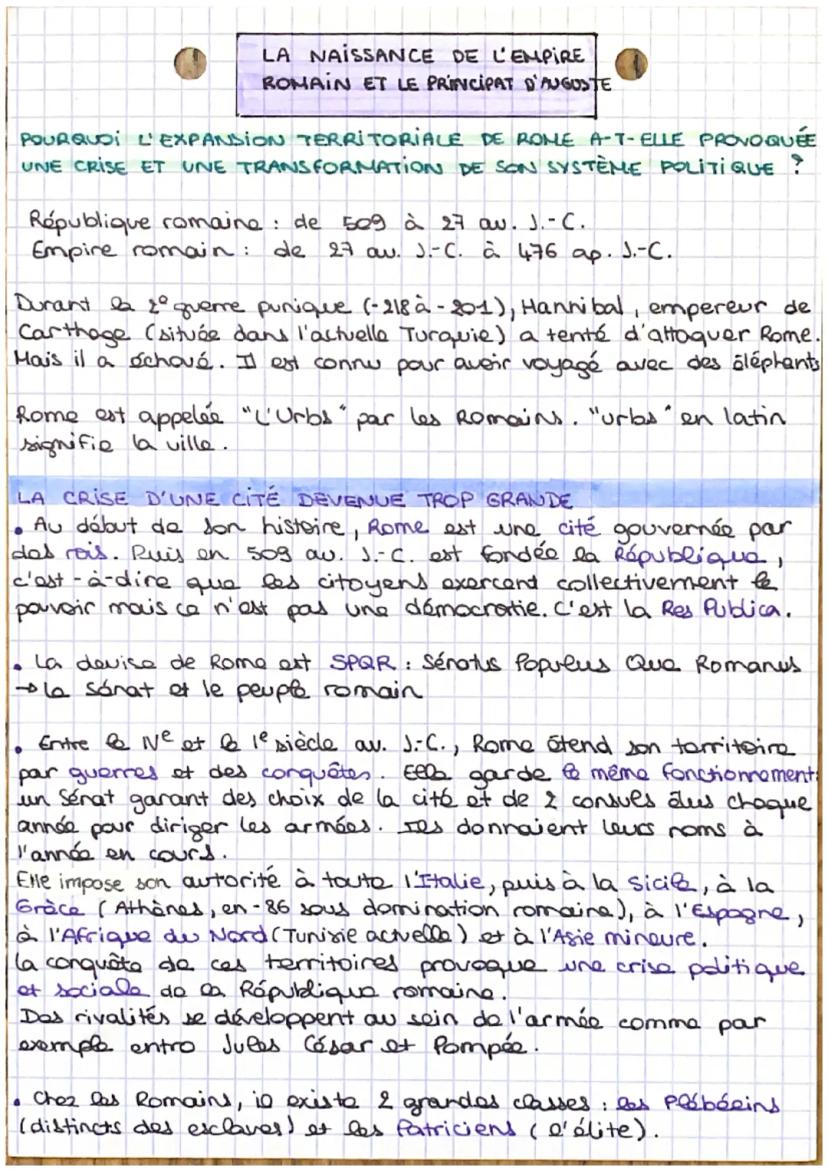 LA NAISSANCE DE L'EMPIRE
ROMAIN ET LE PRINCIPAT D'AUGUSTE
POURQUOI L'EXPANSION TERRITORIALE DE ROME A-T-ELLE PROVOQUÉE
UNE CRISE ET UNE TRANSFORMATION DE SON SYSTÈME POLITIQUE ?
République romaine : de 509 à 27 av. J.-C.
Empire romain : de 27 av. J.-C. à 476 ap. J.-C.
Durant la 2° guerre punique (-218 à -201), Hannibal, empereur de
Carthage (située dans l'actuelle Turquie) a tenté d'attaquer Rome.
Mais il a échoué. Il est connu pour avoir voyagé avec des éléphants
Rome est appelée "L'Urbs" par les Romains. "urbs" en latin
signifie la ville.
LA CRISE D'UNE CITÉ DEVENUE TROP GRANDE
• Au début de son histoire, Rome est une cité gouvernée par
des rois. Puis en 509 av. J.-C. est fondée la République,
c'est-à-dire que les citoyens exercent collectivement le
pouvoir mais ce n'est pas une démocratie. C'est la Res Publica.
• La devise de Rome est SPQR : Sénatus Populus Que Romanus
→ le sénat et le peuple romain
• Entre le IVe et le 1e siècle av. J.-C., Rome étend son territoire
par guerres et des conquêtes. Elle garde le même fonctionnement:
un Sénat garant des choix de la cité et de 2 consuls élus chaque
année pour diriger les armées. Ils donnaient leurs noms à
l'année en cours.
Elle impose son autorité à toute l'Italie, puis à la Sicile, à la
Grèce (Athènes, en -86 sous domination romaine), à l'Espagne,
à l'Afrique du Nord (Tunisie actuelle) et à l'Asie mineure.
La conquête de ces territoires provoque une crise politique
et sociale de la République romaine.
Des rivalités se développent au sein de l'armée comme par
exemple entre Jules César et Pompée.
• Chez les Romains, il existe 2 grandes classes : les Plébéeins
(distincts des esclaves) et les Patriciens (l'élite).